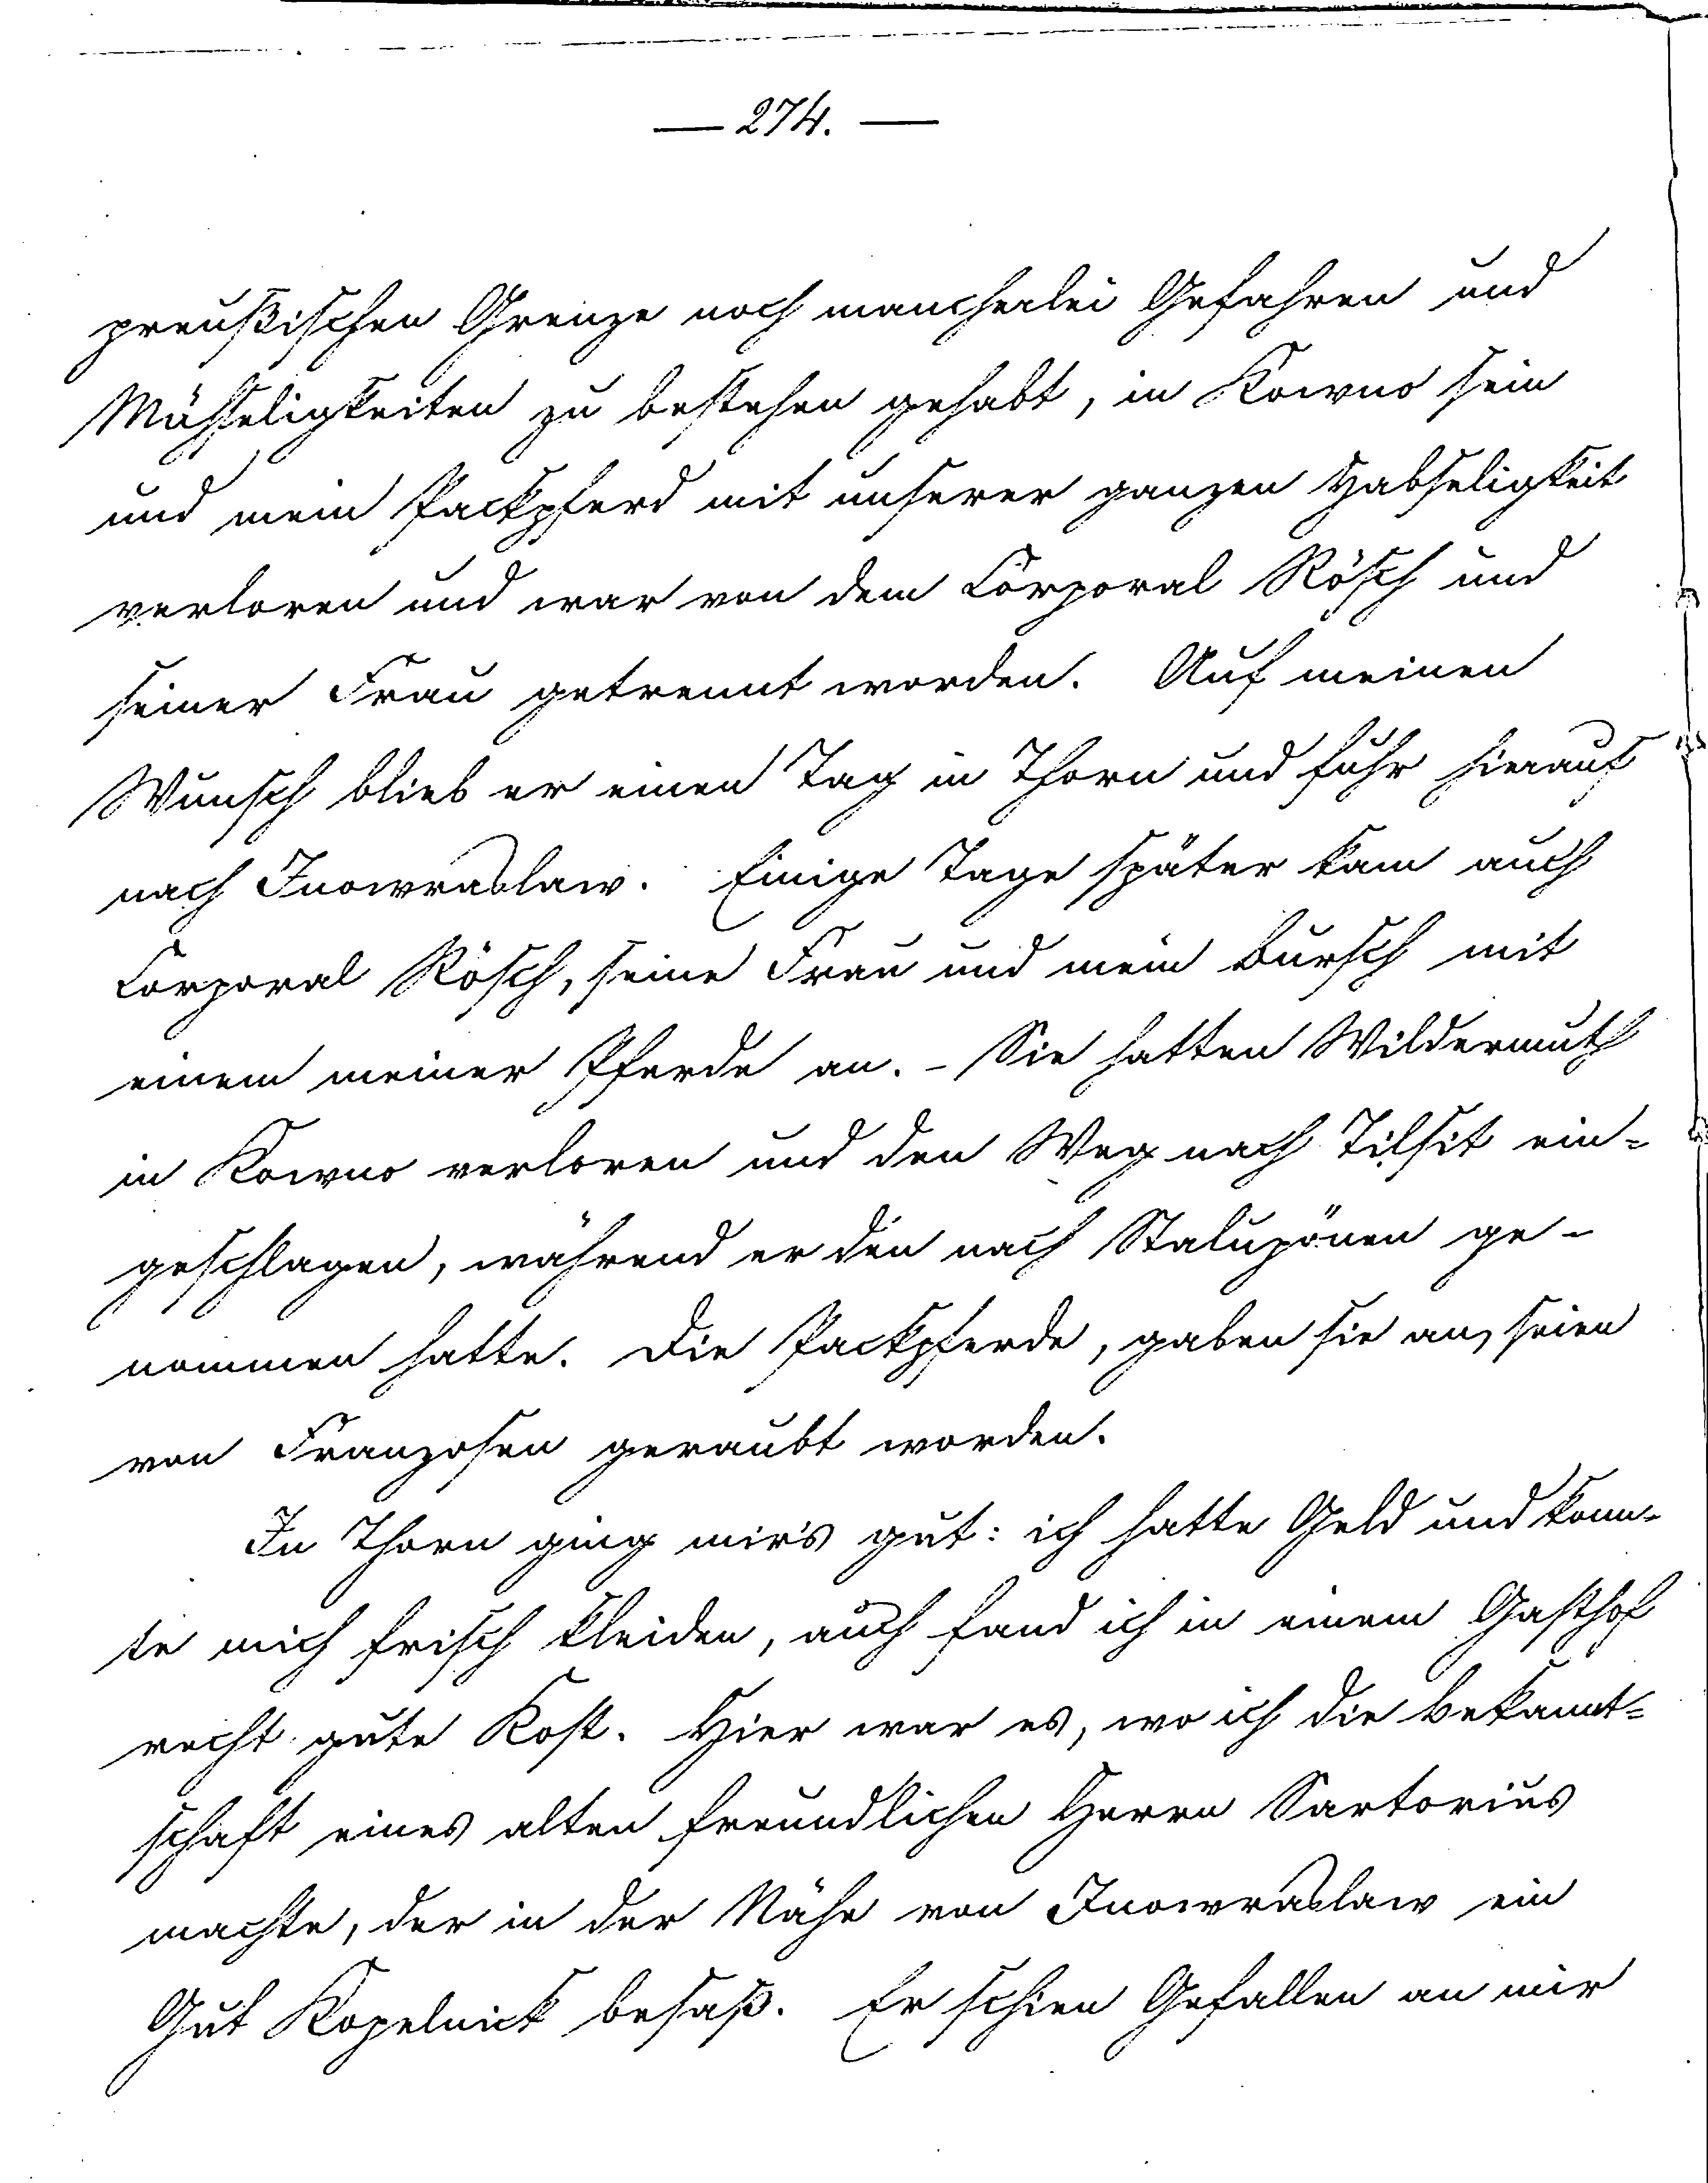 — 274. —
preußischen Grenze noch mancherlei Gefahren und
Mühseligkeiten zu bestehen gehabt, in Kowno sein
und mein Packpferd mit unserer ganzen Habseligkeit
verloren und war von dem Corporal Rösch und
seiner Frau getrennt worden. Auf meinen
Wunsch blieb er einen Tag in Thorn und fuhr hierauf
nach Inowraslaw. Einige Tage später kam auch
Corporal Rösch, seine Frau und mein Bursch mit
einem meiner Pferde an. - Sie hatten Wildermuth
in Kowno verloren und den Weg nach Tilsit ein=
geschlagen, während er den nach Stalupönen ge-
nommen hatte. Die Packpferde, gaben sie an, seien
von Franzosen geraubt worden.
In Thorn ging mir's gut: ich hatte Geld und konn-
te mich frisch kleiden, auch fand ich in einem Gasthof
recht gute Kost. Hier war es, wo ich die Bekannt=
schaft eines alten freundlichen Herrn Sartorius
machte, der in der Nähe von Inowraslaw ein
Gut Kopelnick besaß. Er schien Gefallen an mir